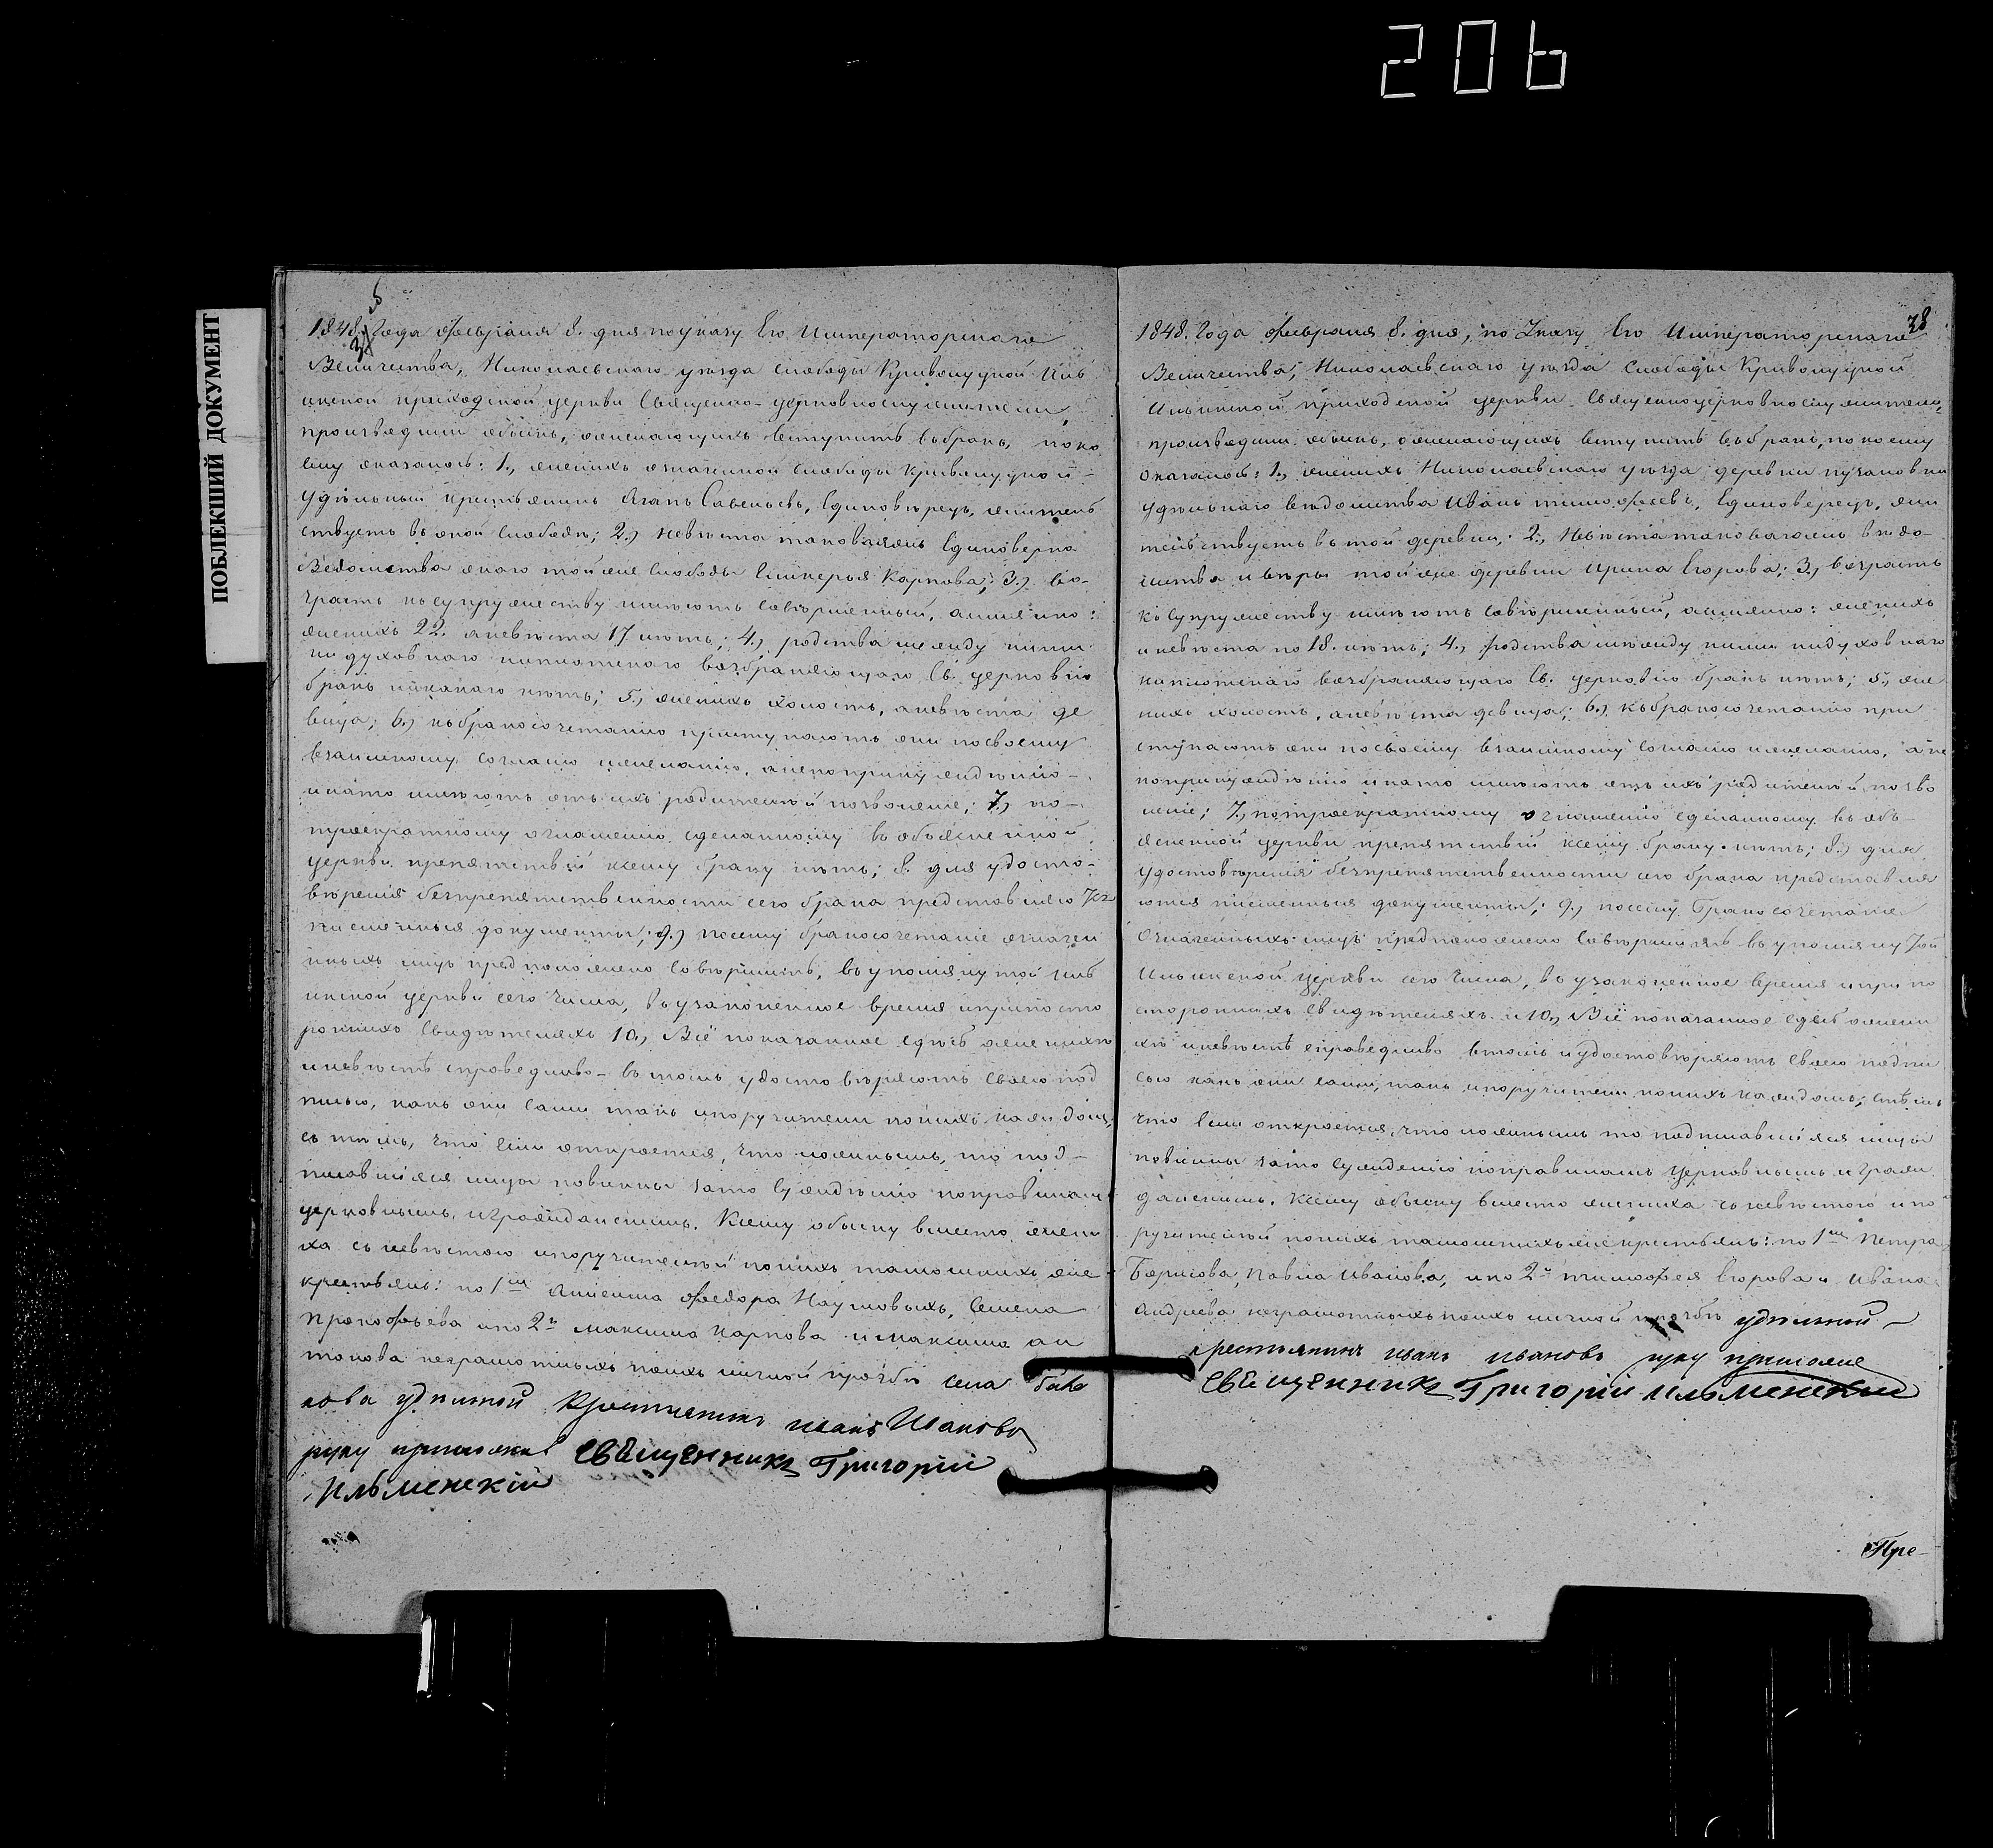 206
ПОБЛЕКШИЙ ДОКУМЕНТ
1848. Года февраля 8. дня по указу Его Императорскаго
Величества, Николаевскаго уѣзда слободы Криволуцкой Иль
инской приходской церкви Священно-церковнослужители,
произведши обыскъ, желающихъ вступить въ бракъ, по ко
ему оказалось: 1., женихъ означенной слободы Криволуцкой
Удѣльный крестьянинъ Агапъ Савельевъ, Единовѣрецъ, жительс
ствуетъ въ оной слободѣ; 2.) невѣста таковаяжъ Единоверка
Вѣдомства онаго тойже слободы Гликерья Карпова; 3.) воз-
растъ къ супружеству имѣютъ совершенный, а именно:
женихъ 22. а невѣста 17 лѣтъ; 4., родства между ними
ни духовнаго ни плотскаго возбраняющаго Св. церковію
бракъ никакаго нѣтъ; 5., женихъ холостъ, а невѣста де
вица; 6.) къ бракосочетанію приступаютъ они по своему
взаимному согласію и желанію, а не по принужденію
и на то имѣютъ отъ ихъ родителей позволеніе; 7., по-
троекратному оглашенію сделанному въ объясненной
церкви препятствій к сему браку нѣтъ; 8. для удосто-
вѣренія безпрепятственности сего брака представляютъ
письменныя документы; 9.) по сему бракосочетаніе означен
ныхъ лицъ предположено совѣршить, въ упомянутой Иль
инской церкви сего числа, въ узаконенное время при посто
роннихъ свидѣтеляхъ 10., Всё показанное сдѣсь о женихѣ
и невѣстѣ справедливо - въ томъ удостовѣряютъ своею под
писью, какъ они сами такъ и поручители по нихъ каждомъ,
съ тѣмъ, что если откроется, что ложнымъ, то под-
писавшіяся лицы повинны за то сужденію по правиламъ
церковнымъ, и гражданскимъ. К сему обыску вместо жени
ха съ невѣстою и поручителей по нихъ тамошнихъ же
крестьянъ: по 1мъ Федора Наумовыхъ, Семена
Прокофьева и по 2й Максима Карпова и Максима ан
тонова неграмотныхъ по ихъ личной прозбѣ села Бала
кова удельной крестьянинъ иванъ Иванов
руку приложил Священникъ Григорій
Ильменскій
38
1848. Года февраля 8. дня, по Указу Его Императорскаго
Величества, Николаевскаго уѣзда Слободы Криволуцкой
Ильинской приходской церкви Священноцерковнослужители,
произведши обыскъ, о желающихъ вступить въ бракъ, по коему
оказалось: 1., женихъ Николаевскаго уѣзда деревни пузановки
Удѣльнаго вѣдомства Иванъ тимофѣевъ, Единоверецъ, жи
тельствуетъ въ той деревни; 2., Невѣста таковагожъ вѣдо-
мства и вѣры тойже деревни Ирина Егорова; 3., возрастъ
къ супружеству имѣютъ совѣршенный, а именно: женихъ
и невѣста по 18. лѣтъ; 4., родства между ними ни духовнаго
ни плотскаго возбраняющаго Св. церковію бракъ нѣтъ; 5., же
нихъ холостъ, а невѣста девица; 6.) къ бракосочетанію при
ступаютъ они по своему взаимному согласію и желанію, а не
по принужденію и на то имѣютъ отъ ихъ родителей позво
леніе; 7., по троекратному оглашенію сделанному въ объ-
ясненной церкви препятствій к сему браку нѣтъ; 8.) для
удостовѣренія безпрепятственности сего брака представля
ются письменныя документы; 9., по сему бракосочетаніе
Означенныхъ лицъ предположено совѣршить въ упомянутой
Ильинской церкви сего числа, въ узаконенное время и при по
стороннихъ свидѣтеляхъ и 10., Всё показанное сдѣсь о жени
хѣ и невѣстѣ справедливо в томъ и удостовѣряютъ своею подпи
сью какъ они сами, такъ и поручители по нихъ каждомъ; стѣмъ
что если откроется, что ложнымъ то подписавшіяся лицы
повинны за то сужденію по правиламъ церковнымъ и граж
данскимъ. К сему обыску вместо жениха съ невѣстою и по
ручителей по нихъ тамошнихъ же крестьянъ: по 1мъ Петра
Борисова, Павла Иванова, и по 2й тимофея Егорова и Ивана
Андреева неграмотныхъ по ихъ личной прозбѣ удѣльной
крестьянинъ иванъ ивановъ руку приложил
Священникъ Григорій Ильменскій
Пре-